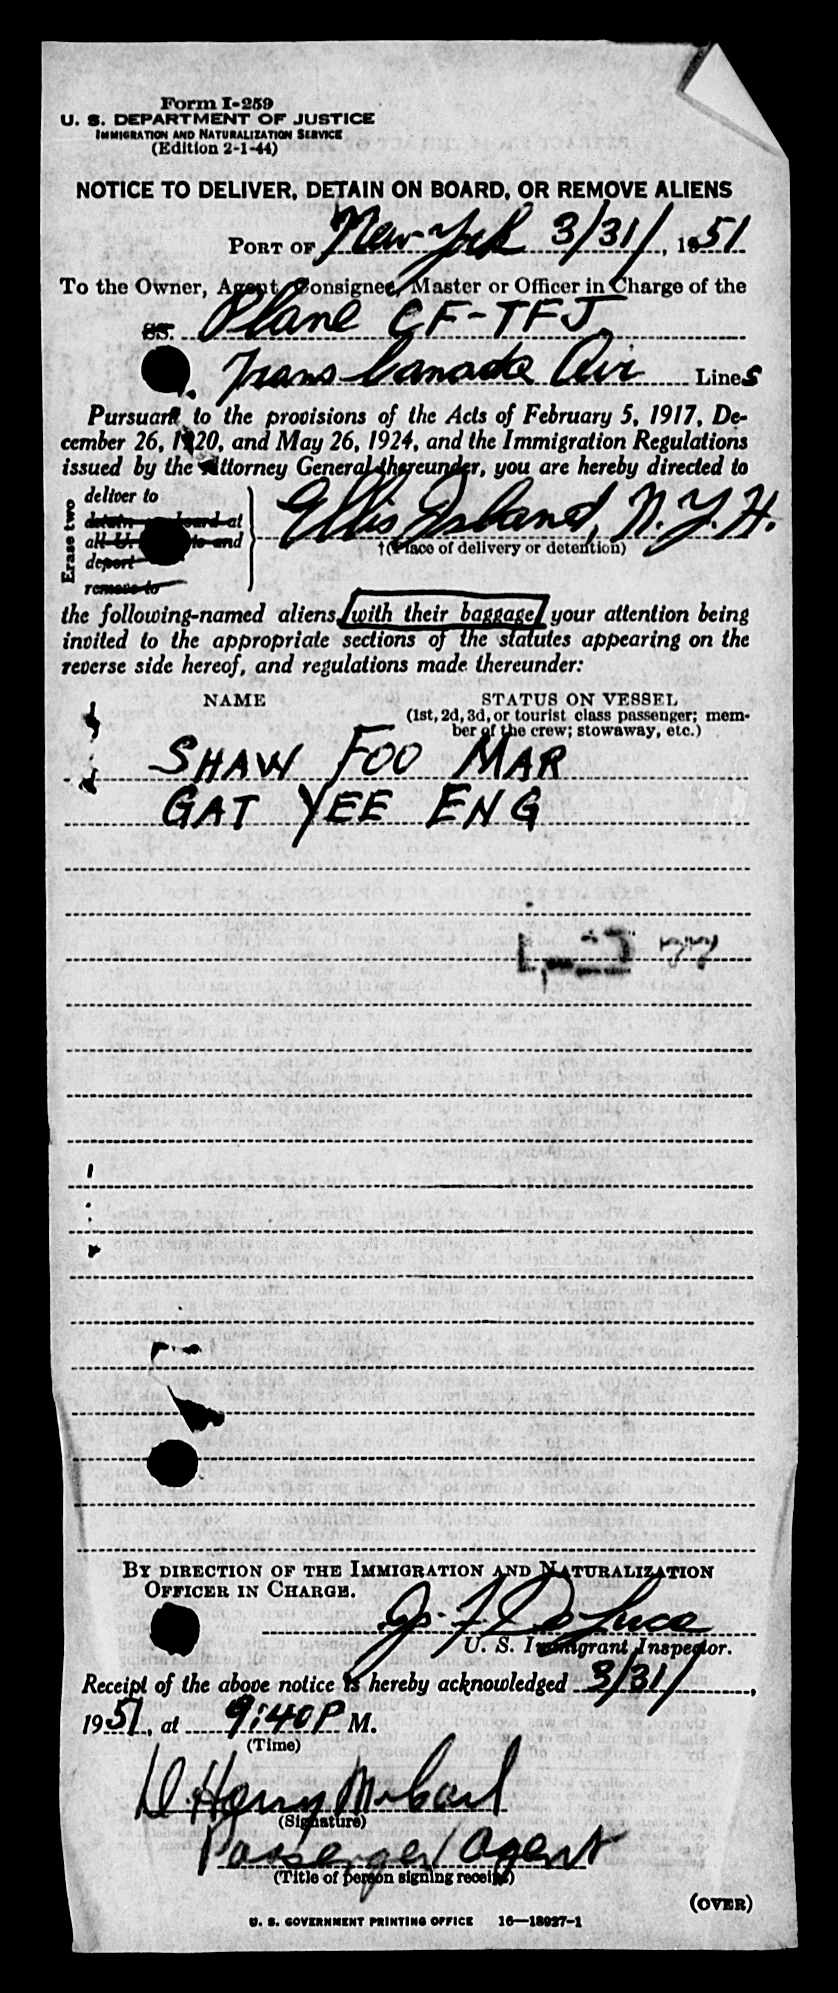 Form I-259
U. S. DEPARTMENT OF JUSTICE
IMMIGRATION AND NATURALIZATION SERVICE
(Edition 2-1-44)
NOTICE TO DELIVER, DETAIN ON BOARD, OR REMOVE ALIENS
PORT OF New York 3/31/, 1951
To the Owner, Agent, Consignee, Master or Officer in Charge of the
SS. Plane CF-TFJ
Trans Canada Air Lines
Pursuant to the provisions of the Acts of February 5, 1917, De-
cember 26, 1920, and May 26, 1924, and the Immigration Regulations
issued by the Attorney General thereunder, you are hereby directed to
Erase two
deliver to
detain on board at
all U. to and
deport
remove to
Ellis Island, N.Y.H.
†(Place of delivery or detention)
the following-named aliens, with their baggage, your attention being
invited to the appropriate sections of the statutes appearing on the
reverse side hereof, and regulations made thereunder:
NAME STATUS ON VESSEL
(1st, 2d, 3d, or tourist class passenger; mem-
ber of the crew; stowaway, etc.)
SHAW FOO MAR
GAT YEE ENG
BY DIRECTION OF THE IMMIGRATION AND NATURALIZATION
OFFICER IN CHARGE.
Jos. F. De Luca
U. S. Immigrant Inspector.
Receipt of the above notice is hereby acknowledged 3/31/,
1951, at 9:40 P M.
(Time)
Henry
(Signature)
Passenger Agent
(Title of person signing receipt)
(OVER)
U. S. GOVERNMENT PRINTING OFFICE 16—18027-1